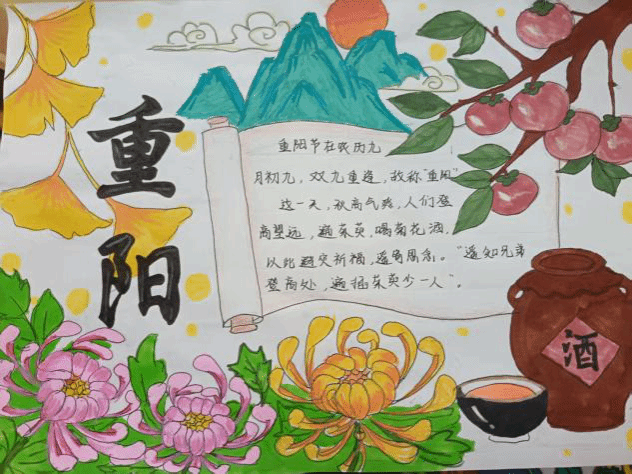 重阳
重阳节在农历九
月初九，双九重逢，故称"重阳"
这一天，秋高气爽，人们登
高望远，遍茱萸，喝菊花酒，
以此避灾祈福，遥寄思念。"遥知兄弟
登高处，遍插茱萸少一人"。
酒